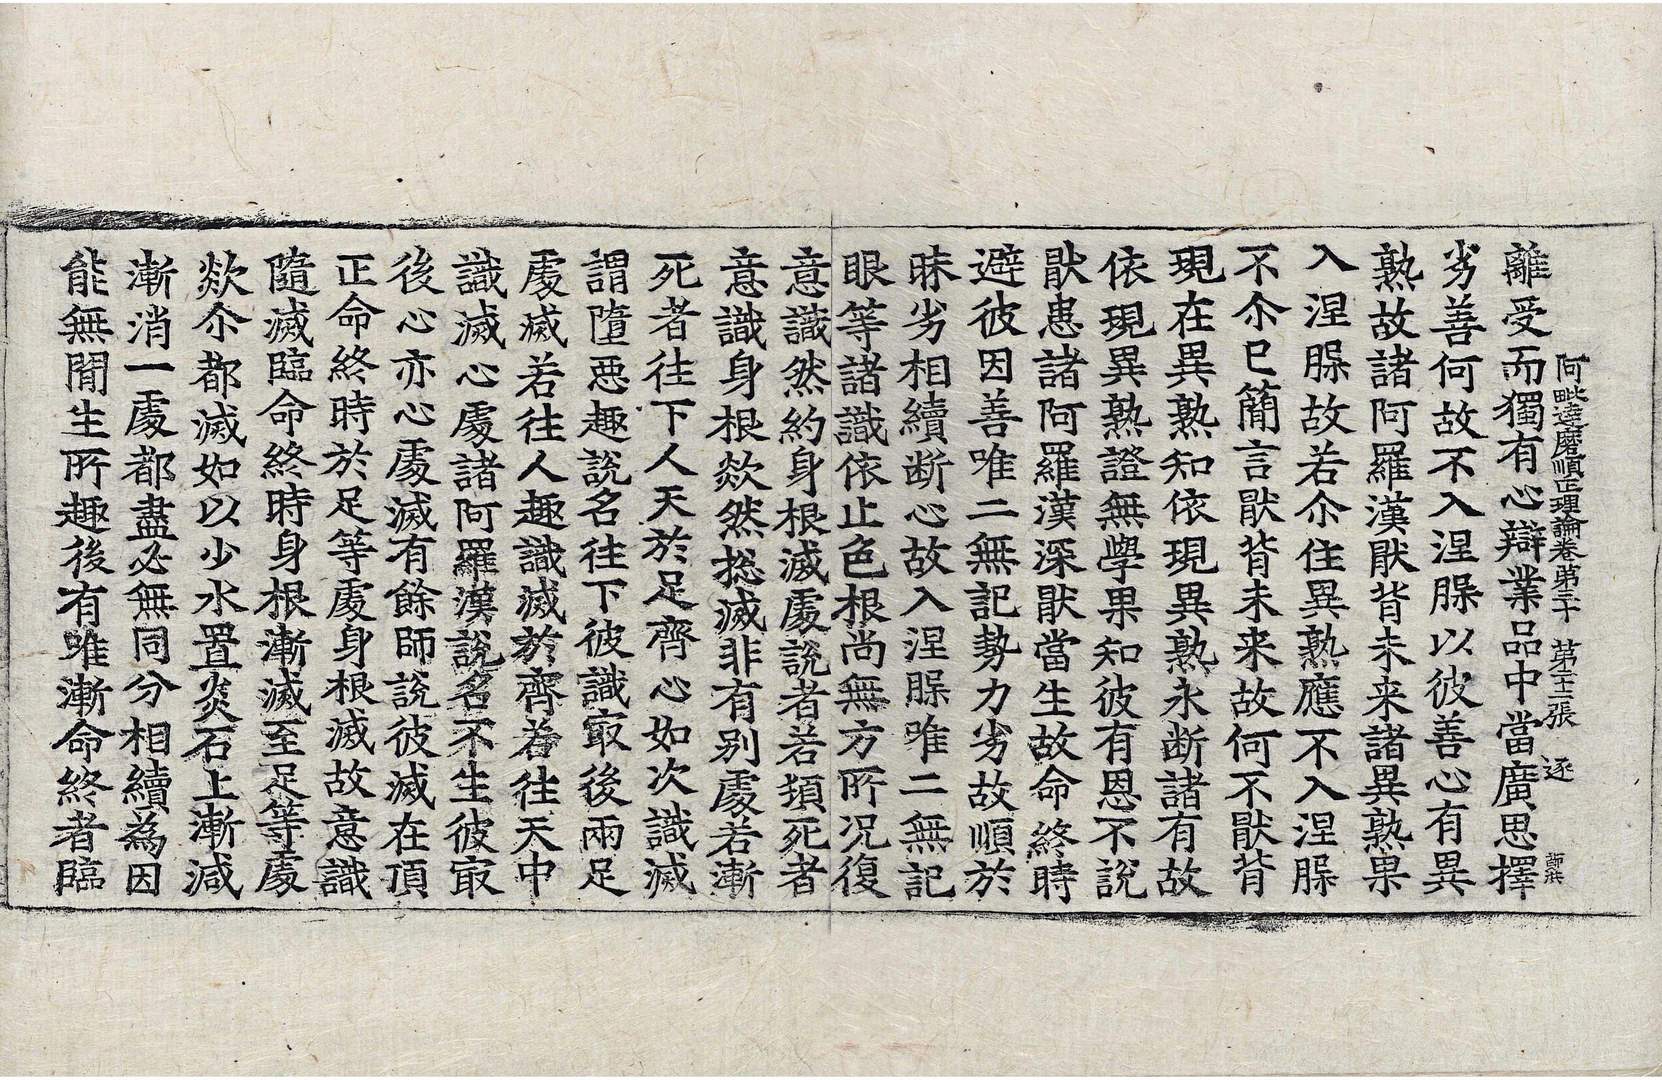 離受而獨有心辯業品中當廣思擇
阿毗達磨順正理論卷第三十 第十二張 逐
劣善何故不入涅脲以彼善心有異
熟故諸阿羅漢猒背未来諸異熟果
入涅脲故若尒住異熟應不入涅脲
不尒已簡言猒背未来故何不猒背
現在異熟知依現異熟永断諸有故
依現異熟證無學果知彼有恩不說
猒患諸阿羅漢深猒當生故命終時
避彼因善唯二無記勢力劣故順於
昧劣相續断心故入涅脲唯二無記
眼等諸識依止色根尚無方所况復
意識然約身根滅處說者若頓死者
意識身根欻然揔滅非有别處若漸
死者往下人天於足齊心如次識滅
謂墮惡趣說名往下彼識冣後兩足
處滅若往人趣識滅於齊若往天中
識滅心處諸阿羅漢說名不生彼冣
後心亦心處滅有餘師說彼滅在頂
正命終時於足等處身根滅故意識
隨滅臨命終時身根漸滅至足等處
欻尒都滅如以少水置炎石上漸減
漸消一處都盡必無同分相續為因
能無閒生所趣後有唯漸命終者臨